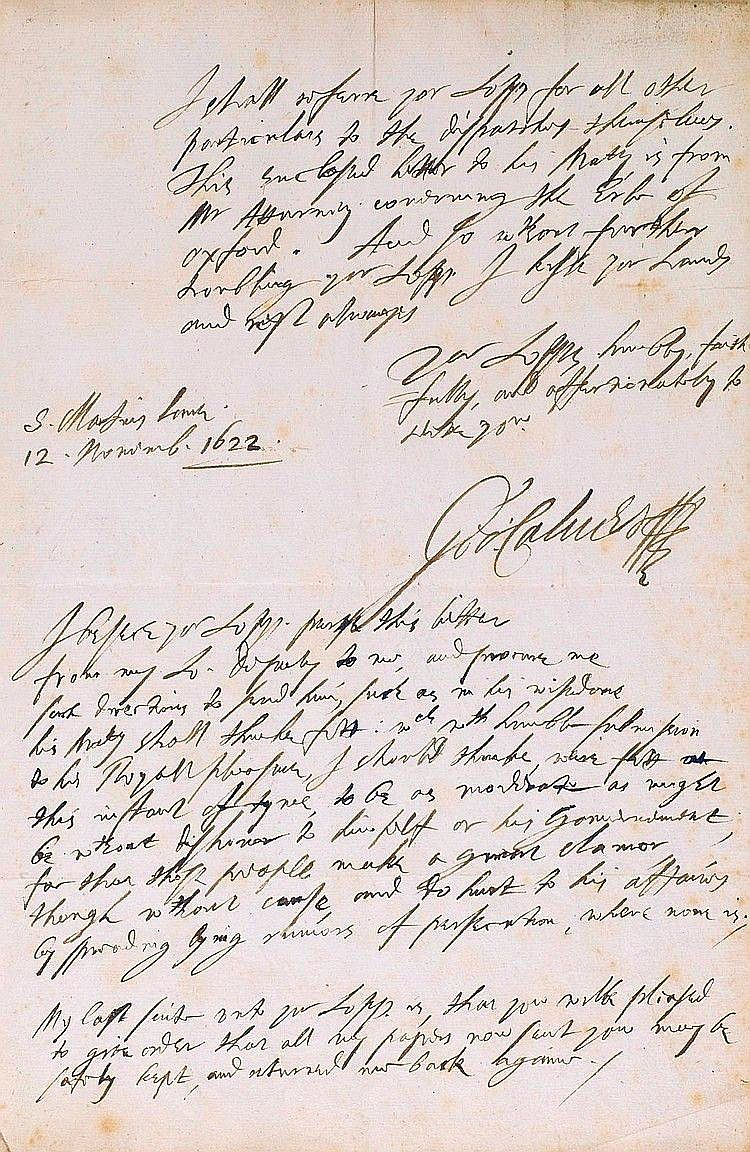 I shall referre yor Lopp for all other
particulars to the dispatches themselves.
This enclosed letter to his Maty is from
Mr Atturney concerning the Erle of
Oxford. And so wthout further
troubling yor Lopp. I kisse yor hands
and rest always
Yor Lopps humbly, faith
fully, and affectionately to
serve you.
S. Martins Lane.
12. Novemb. 1622.
Geo: Calvert
I beseech yor Lopp. peruse this letter
from my Lo. Deputy to me, and procure me
such directions to send him, such as in his wisdome
his Maty shall thinke fitt: wch wth humble submission
to his Royall pleasure, I should thinke, were fitt at
this instant of tyme, to be as moderate as might
be wthout dishonor to himself or his Government,
for that these people make a great clamor
though wthout cause, and do hurt to his affaires
by spreading lying rumors of persecution, where none is;
My last suite unto yor Lopp. is, that you wilbe pleased
to give order that all my papers now sent you may be
safely kept, and returned me back againe./